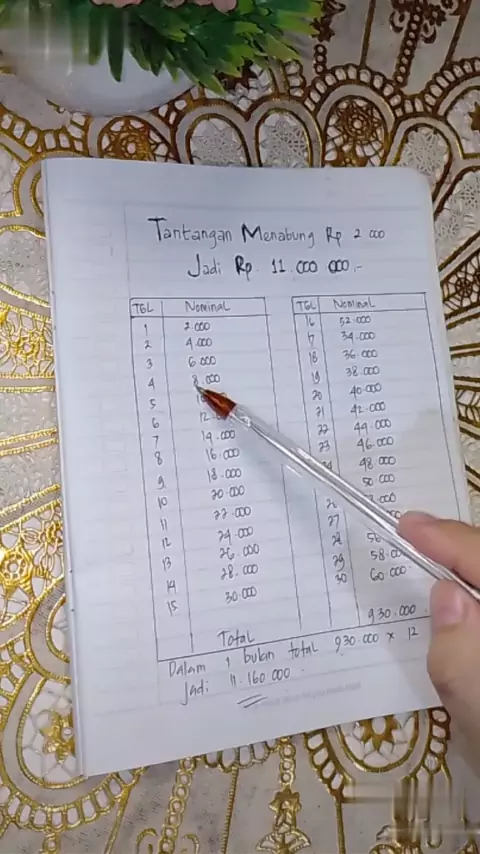 Tantangan Menabung Rp 2 000
Jadi Rp. 11.000 000,-
TGL Nominal
1 2.000
2 4.000
3 6.000
4 8.000
5
6
7 14.000
8 16.000
9 18.000
10 20.000
11 22.000
12 24.000
13 26.000
14 28.000
15 30.000
TGL Nominal
16 32.000
17 34.000
18 36.000
19 38.000
20 40.000
21 42.000
22 44.000
23 46.000
48.000
50.000
27
58.000
30 60.000
Total 930.000
Dalam 1 bulan total 930.000 x 12
jadi 11.160 000